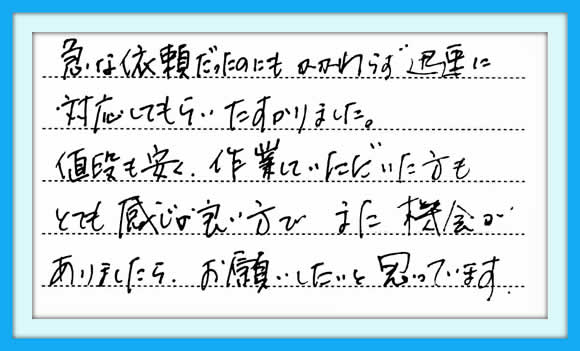 急な依頼だったのにもかかわらず迅速に
対応してもらいたすかりました。
値段も安く、作業していただいた方も
とても感じが良い方で また 機会が
ありましたら、お願いしたいと思っています。